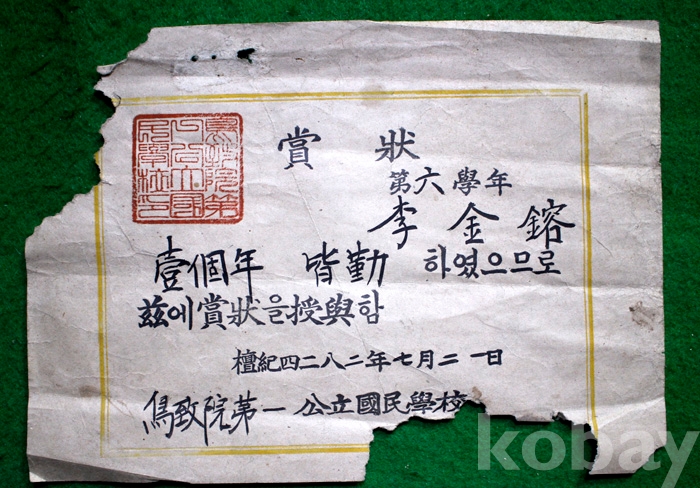 賞狀
第六學年
李金鎔
壹個年 皆勤 하였으므로
玆에賞狀을授與함
檀紀四二八二年七月二一日
鳥致院第一公立國民學校
kobay